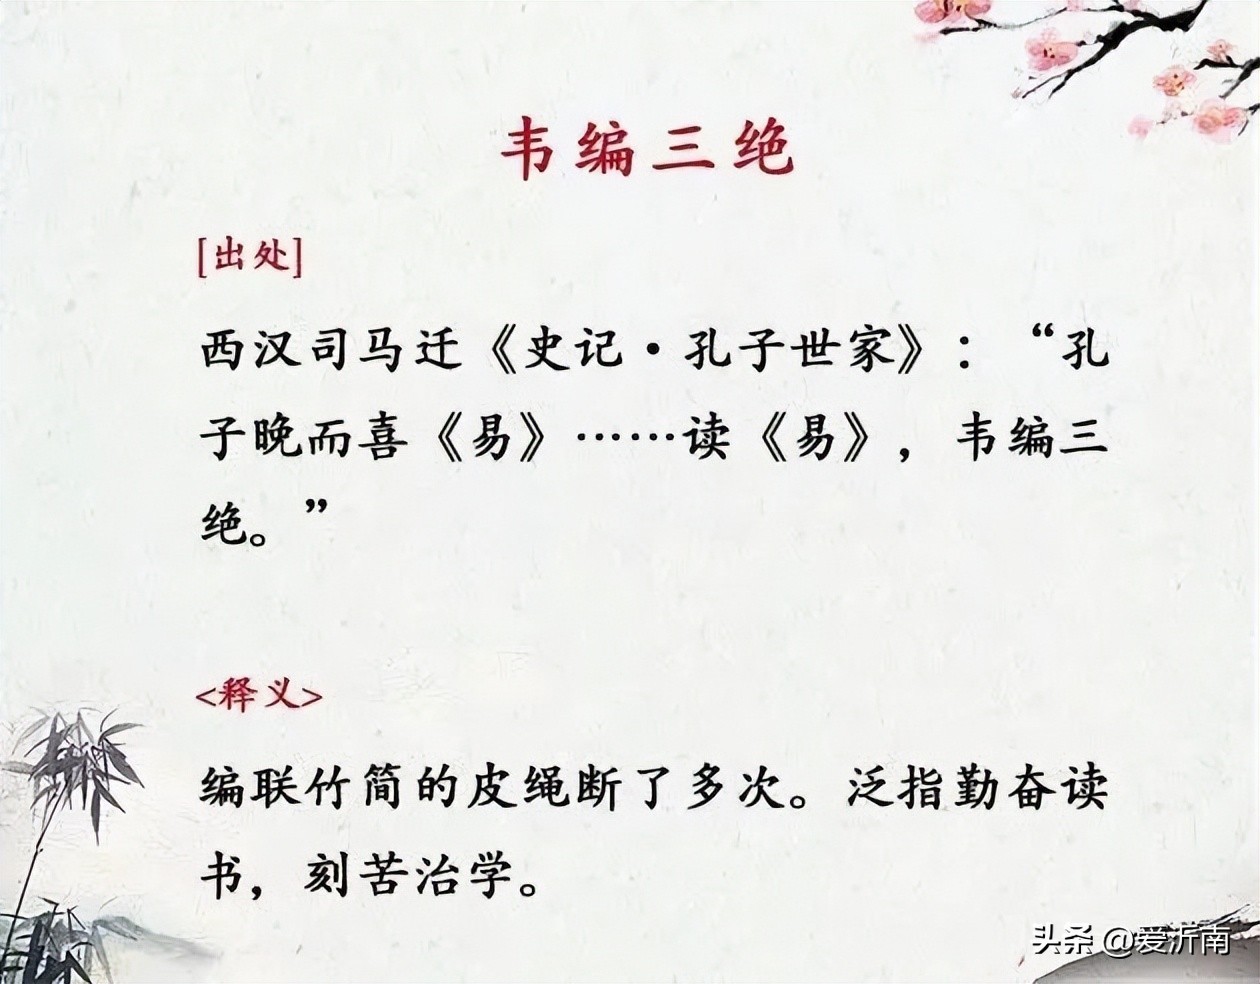 韦编三绝
[出处]
西汉司马迁《史记·孔子世家》：“孔
子晚而喜《易》……读《易》，韦编三
绝。”
<释义>
编联竹简的皮绳断了多次。泛指勤奋读
书，刻苦治学。
头条 @爱沂南